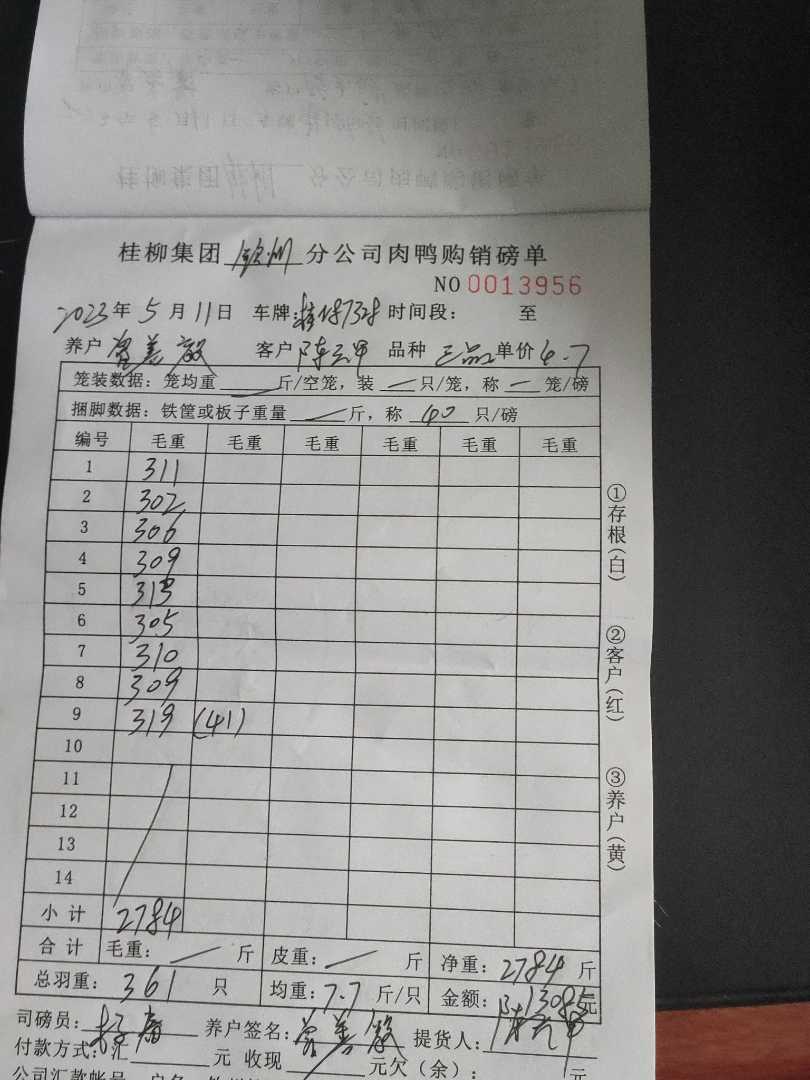 桂柳集团 钦州 分公司肉鸭购销磅单
NO 0013956
2023年 5 月 11日 车牌: 时间段: 至
养户 客户 陈云甲 品种 三品 单价 4.7
笼装数据: 笼均重 — 斤/空笼, 装 — 只/笼, 称 — 笼/磅
捆脚数据: 铁筐或板子重量 — 斤, 称 40 只/磅
编号 毛重 毛重 毛重 毛重 毛重 毛重
1 311
2 302
3 306
4 309
5 313
6 305
7 310
8 309
9 319 (41)
10
11
12
13
14
小计 2784
合计 毛重: — 斤 皮重: — 斤 净重: 2784 斤
总羽重: 361 只 均重: 7.7 斤/只 金额: 13085元
司磅员: 养户签名: 提货人: 陈云甲
付款方式: 汇 元 收现 元欠(余): 元
公司汇款帐号 户名
①存根(白)
②客户(红)
③养户(黄)